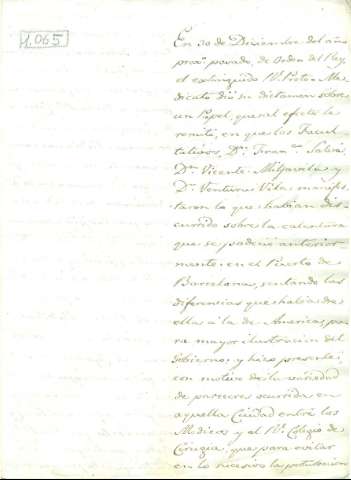 1.065
En 30 de Diciembre del año
proxº pasado, de Orden del Rey,
el extinguido Rl. Proto-Me-
dicato dió su dictamen sobre
un Papel, que al efecto le
remití, en que los Facul-
tativos, Dn. Franco. Salvá,
Dn. Vicente Mitjavila, y
Dn. Ventura Vila manifes-
taron lo que habian dis-
currido sobre la calentura
que se padeció anterior-
mente en el Puerto de
Barcelona, sentando las
diferencias que había de
ella á la de America, pa-
ra mayor ilustracion del
Gobierno; y hizo presente,
con motivo de la variedad
de pareceres ocurrida en
aquella Ciudad entre los
Medicos y el Rl. Colegio de
Cirugia, que para evitar
en lo sucesivo la